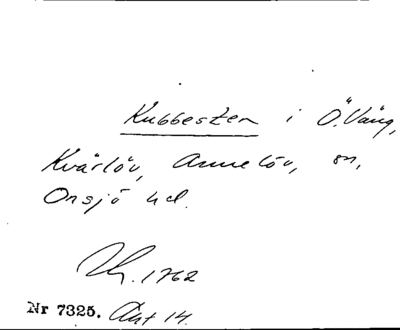 Kubbesten i Ö. Väng,
Kvärlöv, Annelöv, sn,
Onsjö hd.
1762
Nr 7325. Akt 14.